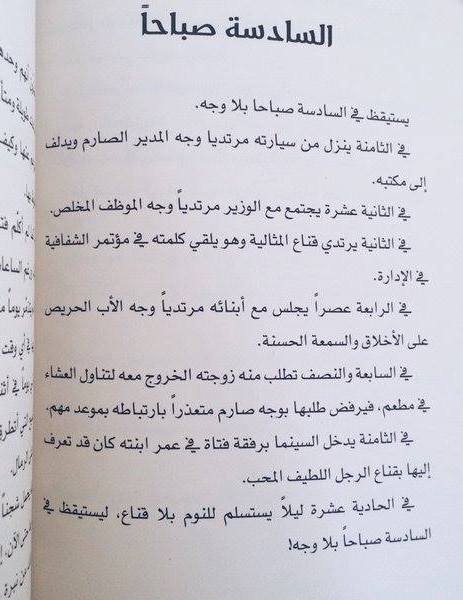 السادسة صباحاً
يستيقظ في السادسة صباحا بلا وجه.
في الثامنة ينزل من سيارته مرتديا وجه المدير الصارم ويدلف
إلى مكتبه.
في الثانية عشرة يجتمع مع الوزير مرتدياً وجه الموظف المخلص.
في الثانية يرتدي قناع المثالية وهو يلقي كلمته في مؤتمر الشفافية
في الإدارة.
في الرابعة عصراً يجلس مع أبنائه مرتدياً وجه الأب الحريص
على الأخلاق والسمعة الحسنة.
في السابعة والنصف تطلب منه زوجته الخروج معه لتناول العشاء
في مطعم، فيرفض طلبها بوجه صارم متعذراً بارتباطه بموعد مهم.
في الثامنة يدخل السينما برفقة فتاة في عمر ابنته كان قد تعرف
إليها بقناع الرجل اللطيف المحب.
في الحادية عشرة ليلاً يستسلم للنوم بلا قناع، ليستيقظ في
السادسة صباحاً بلا وجه!